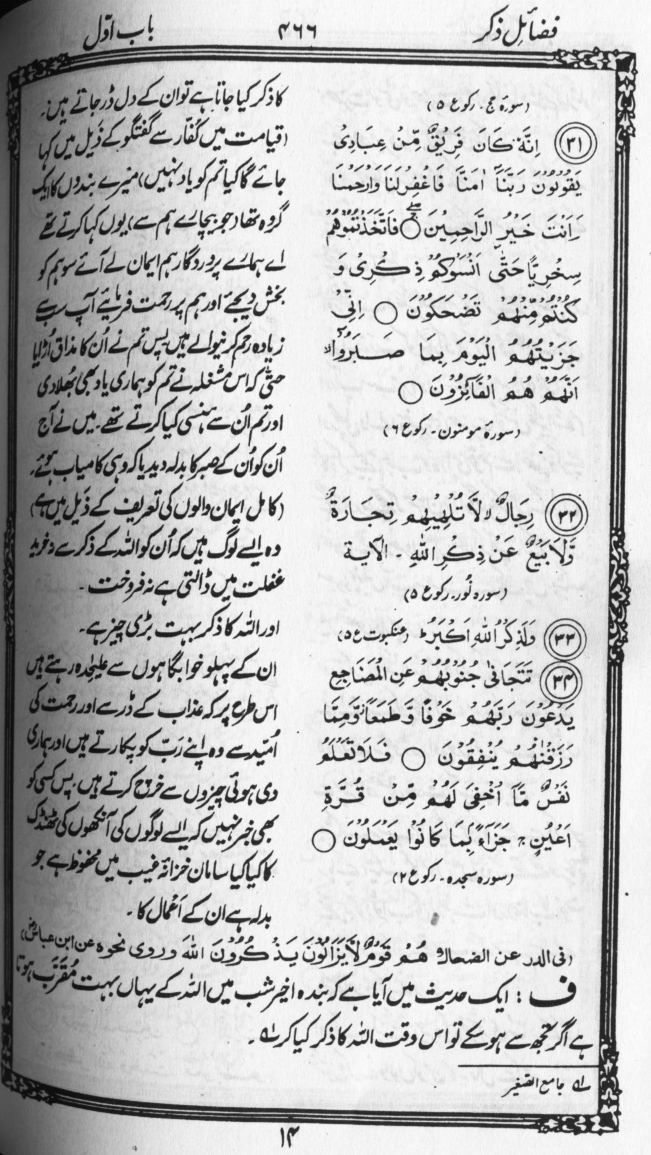 فضائلِ ذکر
۴۶۶
باب اوّل
(سورۂ حج۔ رکوع ۵)
(۳۱) اِنَّهٗ كَانَ فَرِيْقٌ مِّنْ عِبَادِيْ
يَقُوْلُوْنَ رَبَّنَآ اٰمَنَّا فَاغْفِرْلَنَا وَارْحَمْنَا
وَاَنْتَ خَيْرُ الرَّاحِمِيْنَ ○ فَاتَّخَذْتُمُوْهُمْ
سِخْرِيًّا حَتّٰى اَنْسَوْكُمْ ذِكْرِيْ وَ
كُنْتُمْ مِّنْهُمْ تَضْحَكُوْنَ ○ اِنِّيْ
جَزَيْتُهُمُ الْيَوْمَ بِمَا صَبَرُوْا
اَنَّهُمْ هُمُ الْفَآئِزُوْنَ ○
(سورۂ مومنون۔ رکوع ۶)
(۳۲) رِجَالٌ لَّا تُلْهِيْهِمْ تِجَارَةٌ
وَّلَا بَيْعٌ عَنْ ذِكْرِ اللّٰهِ ۔ الآية
(سورہ نُور۔ رکوع ۵)
(۳۳) وَلَذِكْرُ اللّٰهِ اَكْبَرُ (عنکبوت ع۵)
(۳۴) تَتَجَافٰى جُنُوْبُهُمْ عَنِ الْمَضَاجِعِ
يَدْعُوْنَ رَبَّهُمْ خَوْفًا وَّطَمَعًا وَّمِمَّا
رَزَقْنٰهُمْ يُنْفِقُوْنَ ○ فَلَا تَعْلَمُ
نَفْسٌ مَّآ اُخْفِيَ لَهُمْ مِّنْ قُرَّةِ
اَعْيُنٍ ج جَزَآءً بِمَا كَانُوْا يَعْمَلُوْنَ ○
(سورہ سجدہ۔ رکوع ۲)
کا ذکر کیا جاتا ہے تو ان کے دل ڈر جاتے ہیں۔
(قیامت میں کُفّار سے گفتگو کے ذَیل میں کہا
جائے گا کیا تم کو یاد نہیں) میرے بندوں کا ایک
گروہ تھا (جو بیچارے ہم سے) یوں کہا کرتے تھے
اے ہمارے پروردگار ہم ایمان لے آئے سو ہم کو
بخش دیجئے اور ہم پر رحمت فرمائیے آپ سب سے
زیادہ رحم کرنیوالے ہیں پس تم نے اُن کا مذاق اُڑایا
حتّٰی کہ اس مشغلہ نے تم کو ہماری یاد بھی بھلا دی
اور تم اُن سے ہنسی کیا کرتے تھے۔ میں نے آج
اُن کو اُن کے صبر کا بدلہ دیدیا کہ وہی کامیاب ہوئے۔
(کامل ایمان والوں کی تعریف کے ذَیل میں ہے)
وہ ایسے لوگ ہیں کہ اُن کو اللہ کے ذکر سے نہ خرید
غفلت میں ڈالتی ہے نہ فروخت۔
اور اللہ کا ذکر بہت بڑی چیز ہے۔
ان کے پہلو خوابگاہوں سے علیحدہ رہتے ہیں
اس طرح پر کہ عذاب کے ڈر سے اور رحمت کی
اُمید سے وہ اپنے رَبّ کو پکارتے ہیں اور ہماری
دی ہوئی چیزوں سے خرچ کرتے ہیں۔ پس کسی کو
بھی خبر نہیں کہ ایسے لوگوں کی آنکھوں کی ٹھنڈک
کا کیا کیا سامان خزانۂ غیب میں محفوظ ہے جو
بدلہ ہے ان کے اَعْمال کا۔
(فی الدر عن الضحاك هُمْ قَوْمٌ لَّا يَزَالُوْنَ يَذْكُرُوْنَ اللّٰهَ وروی نحوه عن ابن عباس رض)
ف: ایک حدیث میں آیا ہے کہ بندہ اخیر شب میں اللہ کے یہاں بہت مُقرَّب ہوتا
ہے اگر تجھ سے ہو سکے تو اس وقت اللہ کا ذکر کیا کر لہ۔
لہ جامع الصّغیر
۱۴